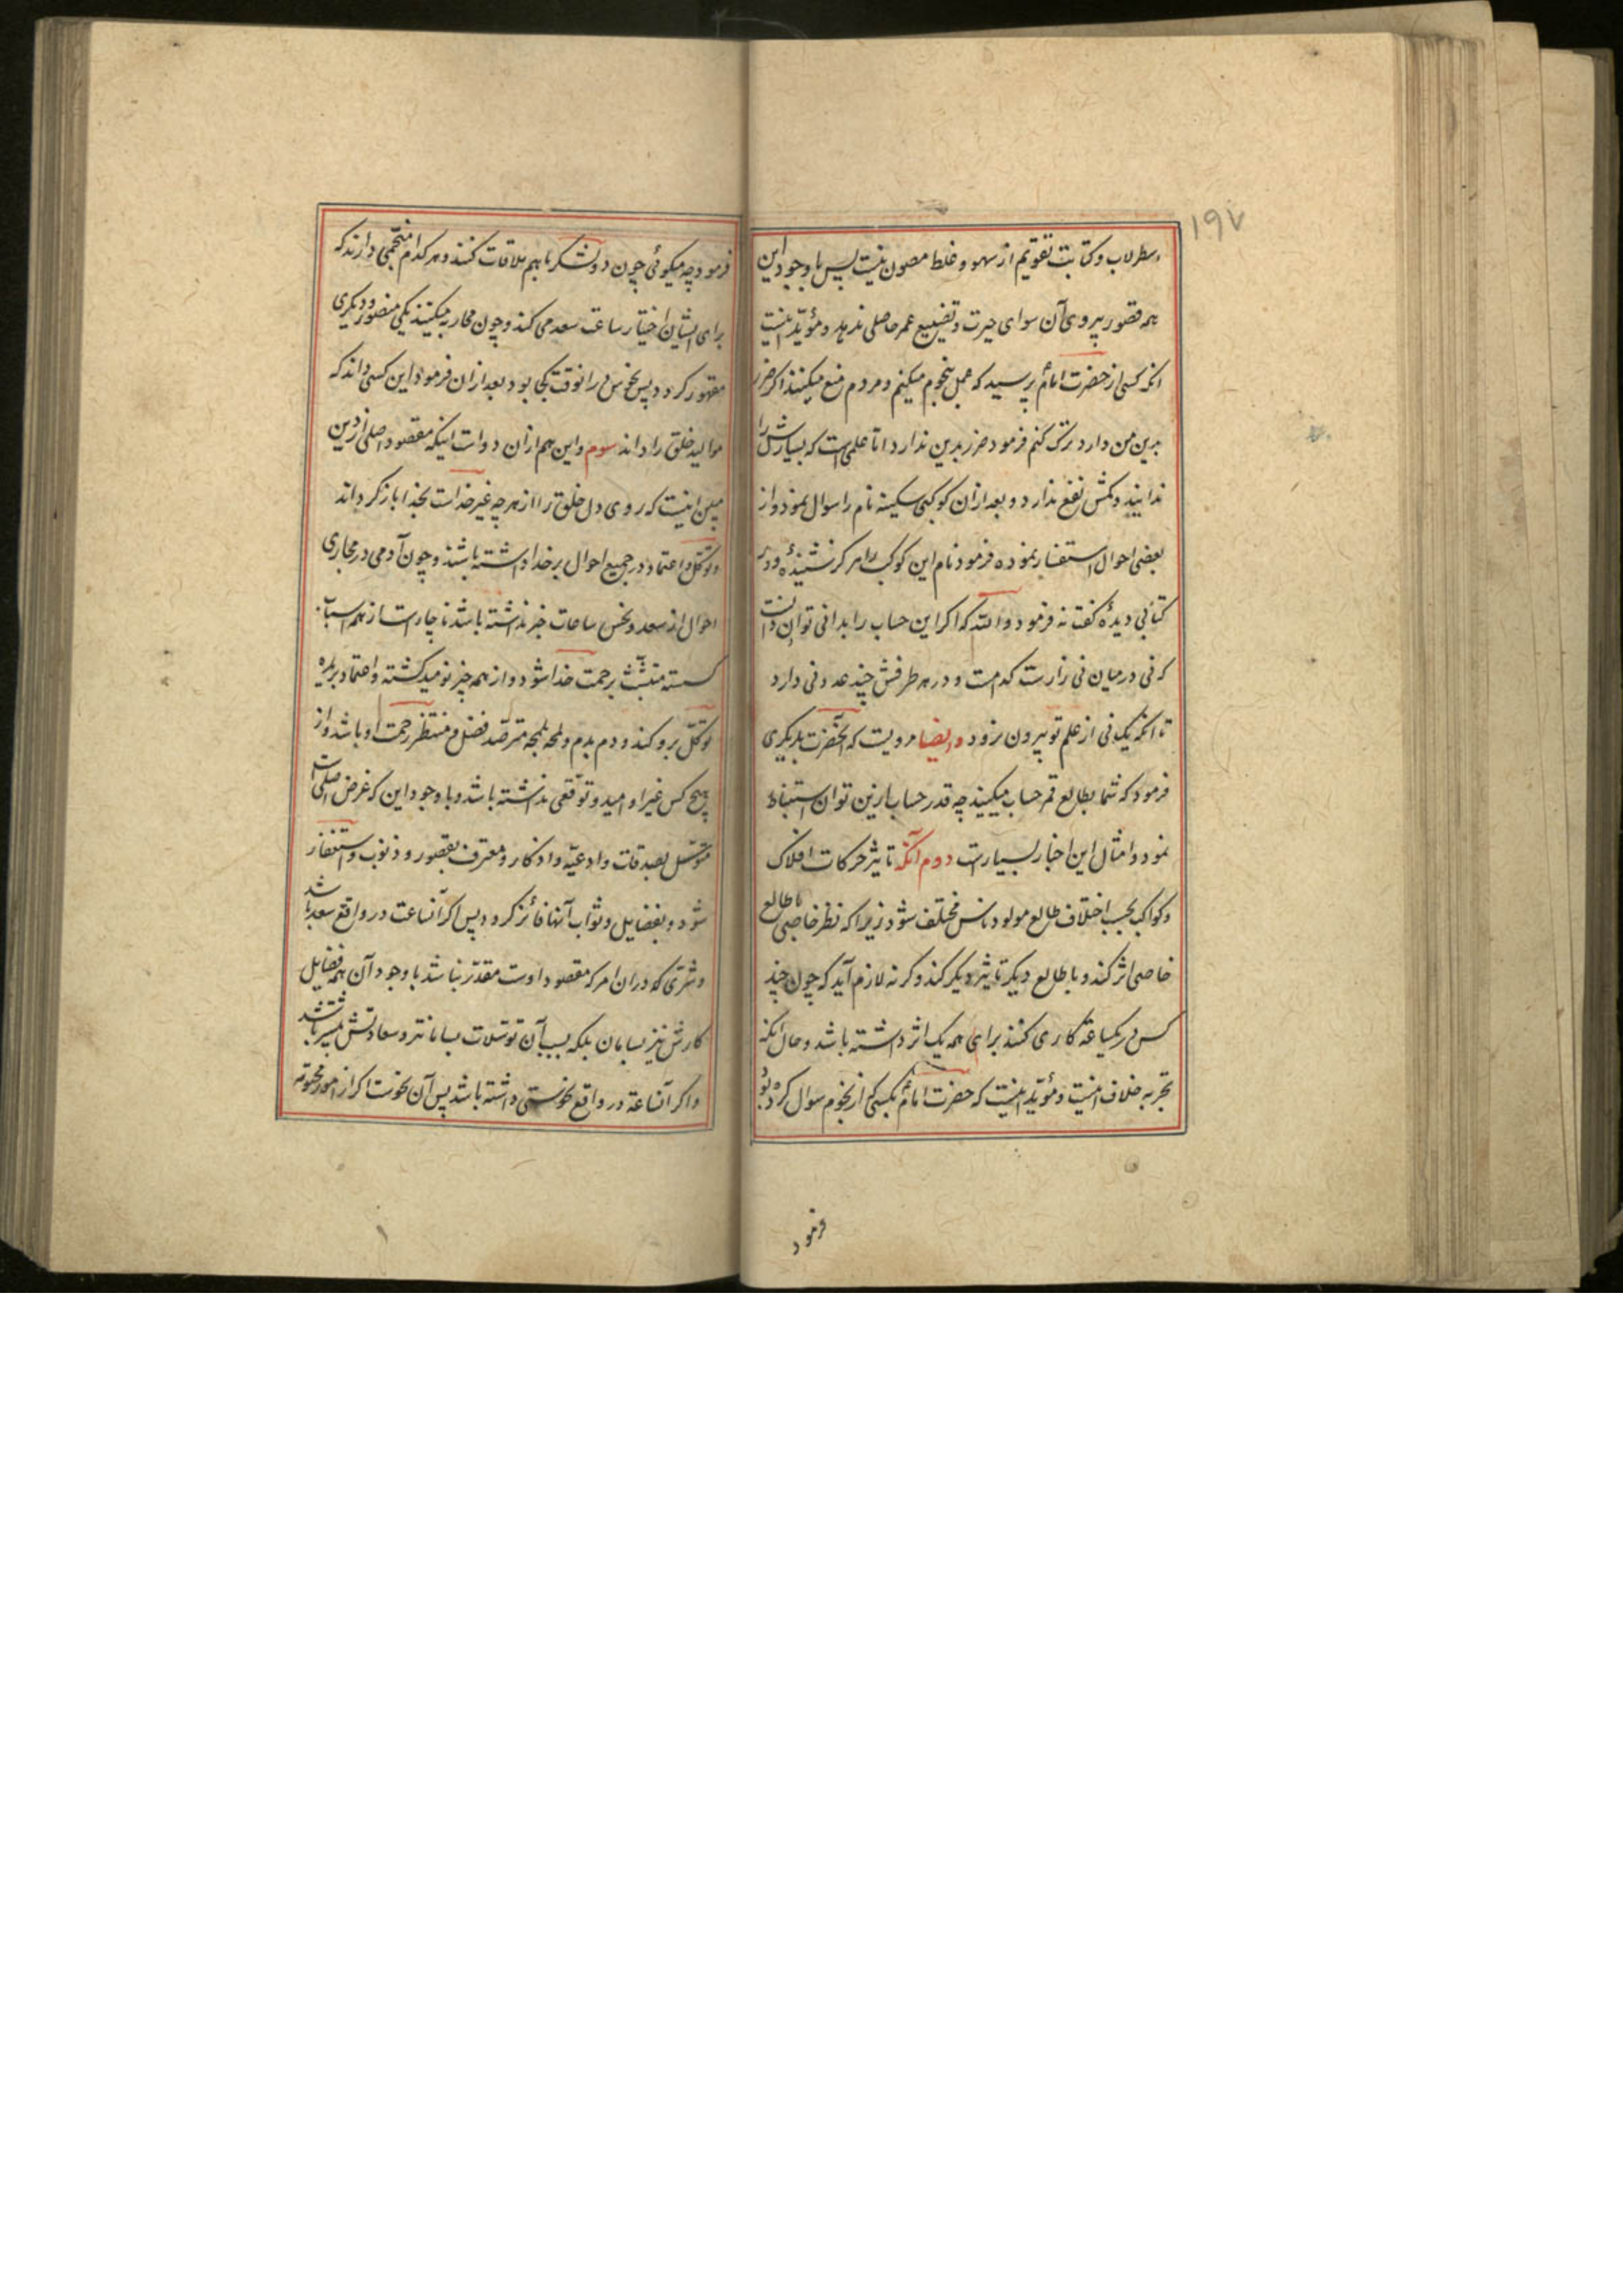 ۱۹۷
اسطرلاب و کتابت تقویم از سهو و غلط مصون نیست پس با وجود این
همه قصور پیروی آن سوای حیرت و تضییع عمر حاصلی ندهد و مؤید اینست
انکه کسی از حضرت امام پرسید که عمل بنجوم میکنم و مردم منع میکنند اگر ضرر
بدین من دارد ترک کنم فرمود ضرر بدین ندارد اما علمی است که بسیارش را
ندانند و کمش نفع ندارد و بعد از آن کوکبی سکینه نام را سوال نمود و از
بعضی احوال استفسار نموده فرمود نام این کوکب را هرگز شنیدهٔ و در
کتابی دیدهٔ گفت نه فرمود والله که اگر این حساب را بدانی توان دانست
که نی در میان نی زارست کدامست و در هر طرفش چند عدد نی دارد
تا انکه یک نی از علم تو بیرون نرود وایضا مرویست که آنحضرت بدیگری
فرمود که شما بطالع قمر حساب میکنید چه قدر حساب ازین توان استنباط
نمود و امثال این اخبار بسیارست دوم آنکه تاثیر حرکات افلاک
و کواکب بحسب اختلاف طالع مولود ناس مختلف شود زیرا که نظر خاصی با طالع
خاصی اثر کند و با طالع دیگر تاثیر دیگر کند و گرنه لازم آید که چون چند
کس در یکساعة کاری کنند برای همه یک اثر داشته باشد و حال انکه
تجربه خلاف اینست و مؤید اینست که حضرت امام بکسی که از نجوم سوال کرده بود
فرمود
فرمود چه میکوئی چون دو لشکر باهم ملاقات کنند و هر کدام منجمی دارند که
برای ایشان اختیار ساعت سعد می کند و چون محاربه میکنند یکی منصور و دیگری
مقهور گردد پس نحوس را نوقت کجا بود بعد از آن فرمود این کسی داند که
موالید خلق را داند سوم و این هم از آن دو است اینکه مقصود اصلی از دین
مبین اینست که روی دل خلق را از هرچه غیر خداست بخدا باز کردانند
و توکل و اعتماد در جمیع احوال بر خدا داشته باشند و چون آدمی در مجاری
احوال از سعد و نحس ساعات خبر نداشته باشد ناچارست از همه اسباب
کسسته متشبث برحمت خدا شود و از همه چیز نومید کشته و اعتماد بریده
توکل برو کند و دم بدم و لمحه بلمحه مترصد فضل و منتظر رحمت او باشد و از
هیچ کس غیر او امید و توقعی نداشته باشد و با وجود این که غرض اصلی است
متوسل بصدقات و ادعیه و اذکار و معترف بقصور و ذنوب و استغفار
شود و بفضایل و ثواب آنها فائز کردد پس اگر آنساعت در واقع سعد باشد
و شری که در ان امر که مقصود اوست مقدر نباشد با وجود آن همه فضایل
کارش نیز بسامان بلکه بسبب آن توسلات بسامانتر و سعادتش بیشتر باشد
و اگر آنساعة در واقع نحوستی داشته باشد پس آن نحوست اگر از امور محتومه